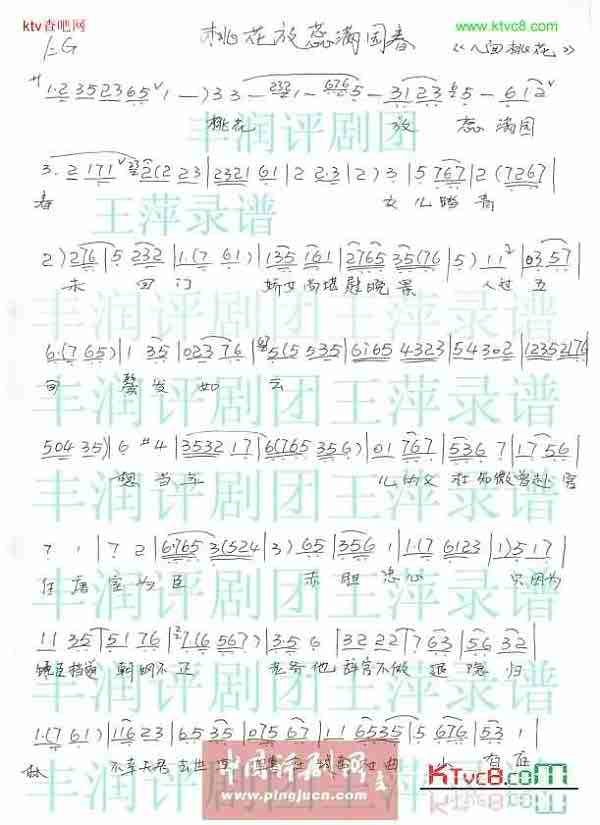 ktv查吧网
www.ktvc8.com
桃花放蕊满园春
1=G
《人间桃花》
サ1·2 352365 1 —) 3 3 — 232 1 — 676 5 — 3123 5 — 6 1 2
桃花 放 蕊 满园
丰润评剧团
3· 2 171 2 (2 2 3 | 2321 61 | 2 2·3 | 2) 3 | 5 767 | 2 (7267) |
春 女儿踏青
王萍录谱
2) 276 | 5 232 | 1·(7 61) | 135 161 | 2765 35(76 | 5) 1 1 | 03 57 |
未回门 娇女尚堪慰晚景 人过五
丰润评剧团王萍录谱
6·(7 65) | 1 35 | 023 76 | 5(5 535 | 6165 4323 | 54302 | 12352176
旬 鬓发如云
丰润评剧团王萍录谱
504 35) | 6 #4 | 3532 17 | 6(765 356) | 01 767 | 536 7 | 17 56 |
想当年 儿的父杜知微曾赴官
丰润评剧团王萍录谱
7 1 | 7 2 | 6765 3(524 | 3) 65 | 356 1 | 1·(7 6123 | 1) 5 17 |
在唐室为臣 赤胆忠心 只因为
丰润评剧团王萍录谱
11 35 | 51 76 | 7(6 567) | 3·5 6 | 32 22 | 763 | 56 32 |
朝纲不正 老爷他辞官不做退隐归
丰润评剧团王萍录谱
1·(7 61) | 116 23 | 65 35 | 075 67 | 11 6535 | 5 676 | 53 1
林 不幸夫君去世
丰润评剧团
中国评剧网
www.pingjucn.com
KTvc8.com